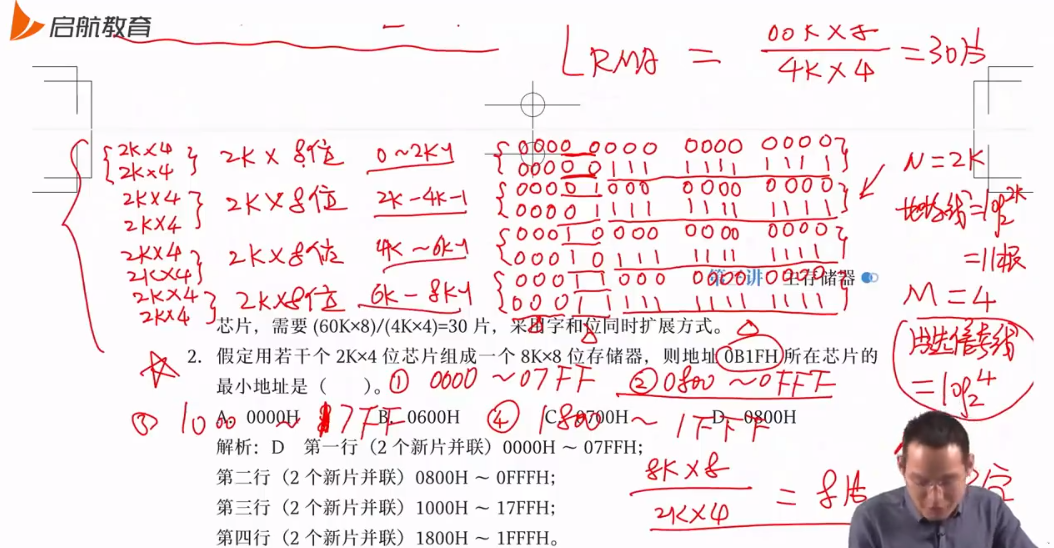 启航教育
LRMA = 60K×8 / 4K×4 = 30片
{ 2K×4 2K×4 } 2K×8位 0~2K-1 { 0000 0000 0000 0000
0000 0111 1111 1111 }
2K×4 2K×4 } 2K×8位 2K-4K-1 { 0000 1000 0000 0000
0000 1111 1111 1111 }
2K×4 2K×4 } 2K×8位 4K~6K-1 { 0001 0000 0000 0000
0001 0111 1111 1111 }
2K×4 2K×4 } 2K×8位 6K-8K-1 { 0001 1000 0000 0000
0001 1111 1111 1111 }
N=2K
地址线=log₂2K
=11根
M=4
片选信号线
=log₂4
主存储器
芯片，需要 (60K×8)/(4K×4)=30 片，采用字和位同时扩展方式。
2. 假定用若干个 2K×4 位芯片组成一个 8K×8 位存储器，则地址 0B1FH 所在芯片的
最小地址是（ ）。① 0000 ~07FF ② 0800 ~0FFF
A. 0000H B. 0600H C. 0700H D. 0800H
③ 1000 ~ 17FF ④ 1800 ~ 1FFF
解析：D 第一行（2 个新片并联）0000H ~ 07FFH；
第二行（2 个新片并联）0800H ~ 0FFFH；
第三行（2 个新片并联）1000H ~ 17FFH；
第四行（2 个新片并联）1800H ~ 1FFFH。
8K×8 / 2K×4 = 8片